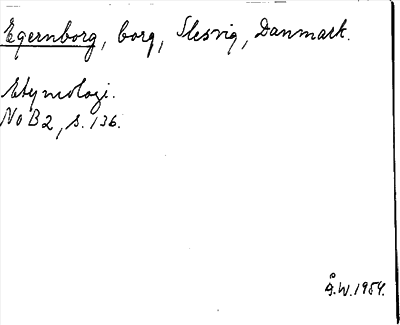 Egernborg, borg, Slesvig, Danmark.
Etymologi.
NoB2, s. 136.
Å.W. 1954.